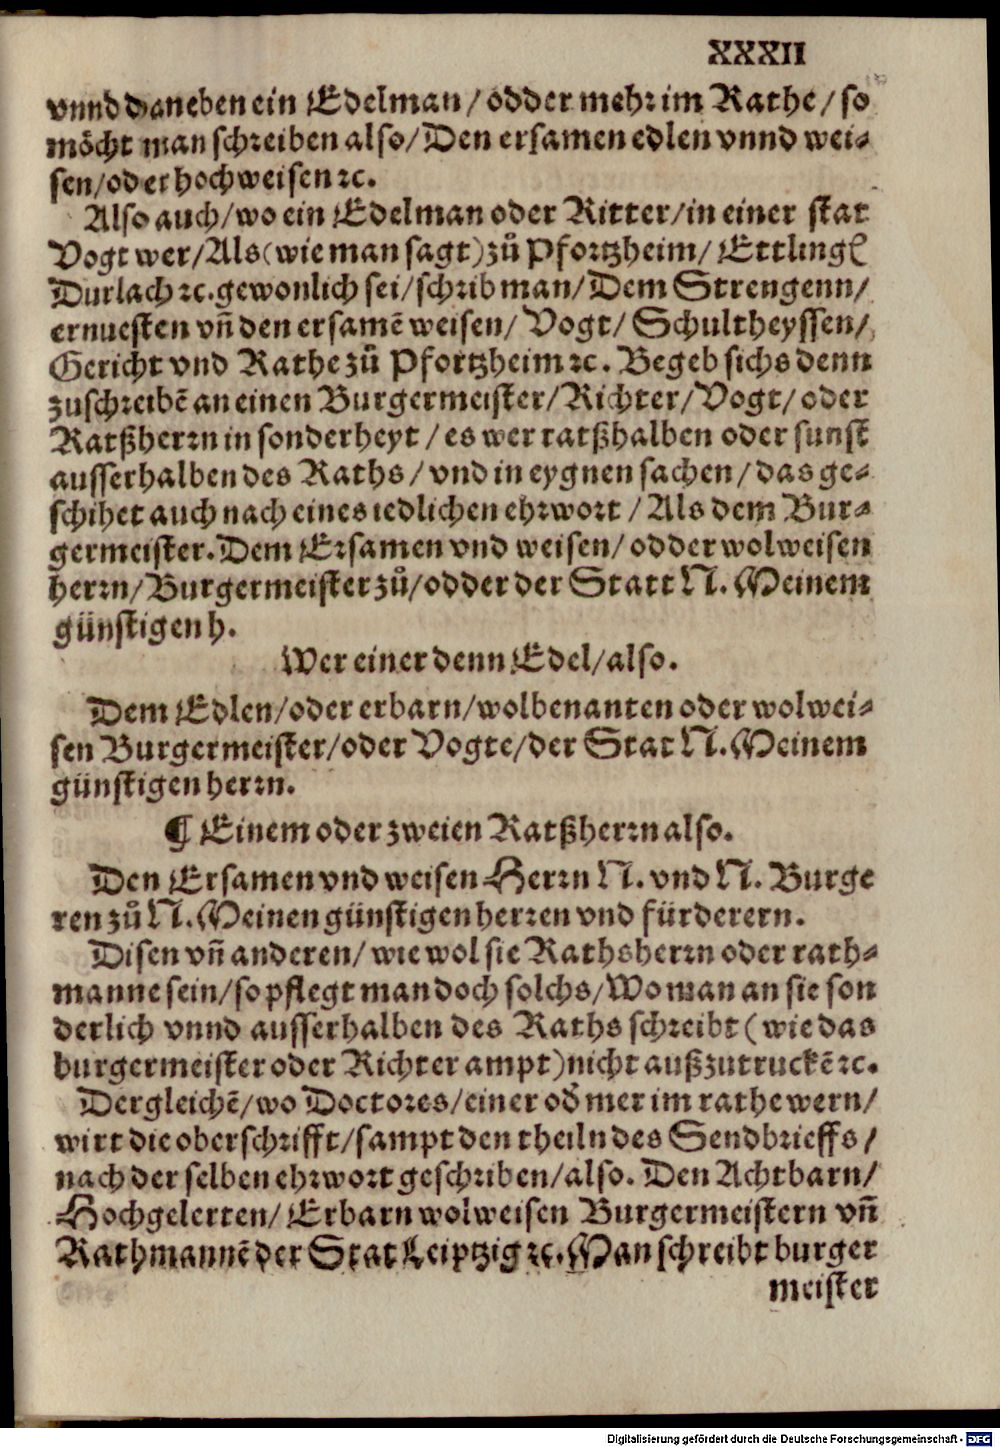 XXXII
vnnd daneben ein Edelman / odder mehr im Rathe / so
möcht man schreiben also / Den ersamen edlen vnnd wei⸗
sen / oder hochweisen ꝛc.
Also auch / wo ein Edelman oder Ritter / in einer stat
Vogt wer / Als (wie man sagt) zů Pfortzheim / Ettling
Durlach ꝛc. gewonlich sei / schrib man / Dem Strengenn /
ernuesten vñ den ersamē weisen / Vogt / Schultheyssen /
Gericht vnd Rathe zů Pfortzheim ꝛc. Begeb sichs denn
zuschreibē an einen Burgermeister / Richter / Vogt / oder
Ratßherrn in sonderheyt / es wer ratßhalben oder sunst
ausserhalben des Raths / vnd in eygnen sachen / das ge⸗
schihet auch nach eines iedlichen ehrwort / Als dem Bur⸗
germeister. Dem Ersamen vnd weisen / odder wolweisen
herrn / Burgermeister zů / odder der Statt N. Meinem
günstigen h.
Wer einer denn Edel / also.
Dem Edlen / oder erbarn / wolbenanten oder wolwei⸗
sen Burgermeister / oder Vogte / der Stat N. Meinem
günstigen herrn.
¶ Einem oder zweien Ratßherrn also.
Den Ersamen vnd weisen Herrn N. vnd N. Burge
ren zů N. Meinen günstigen herren vnd fürderern.
Disen vñ anderen / wie wol sie Rathsherrn oder rath⸗
manne sein / so pflegt man doch solchs / Wo man an sie son
derlich vnnd ausserhalben des Raths schreibt (wie das
burgermeister oder Richter ampt) nicht außzutruckē ꝛc.
Dergleichē / wo Doctores / einer od̓ mer im rathe wern /
wirt die oberschrifft / sampt den theiln des Sendbrieffs /
nach der selben ehrwort geschriben / also. Den Achtbarn /
Hochgelerten / Erbarn wolweisen Burgermeistern vñ
Rathmannē der Stat Leiptzig ꝛc. Man schreibt burger
meister
Digitalisierung gefördert durch die Deutsche Forschungsgemeinschaft - DFG